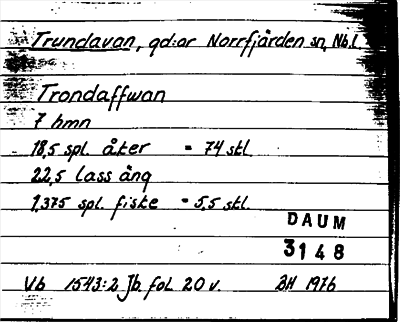 Trundavan, gd:ar Norrfjärden sn, Nb.l.
Trondaffwan
7 hmn
18,5 spl. åker = 74 stl.
22,5 lass äng
1,375 spl. fiske = 5,5 stl.
DAUM
3148
Vb 1543:2 Jb. fol 20 v. BH 1976